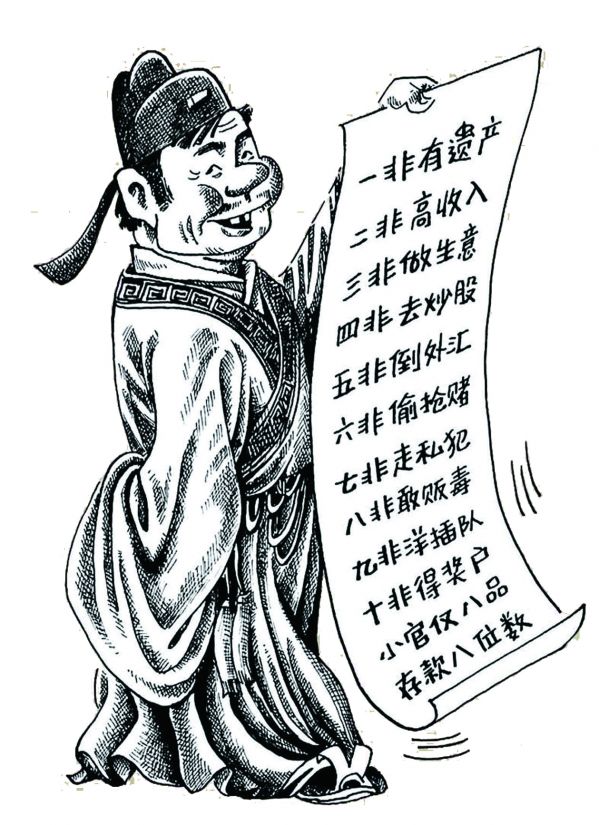 一非有遗产
二非高收入
三非做生意
四非去炒股
五非倒外汇
六非偷抢赌
七非走私犯
八非敢贩毒
九非洋插队
十非得奖户
小官仅八品
存款八位数